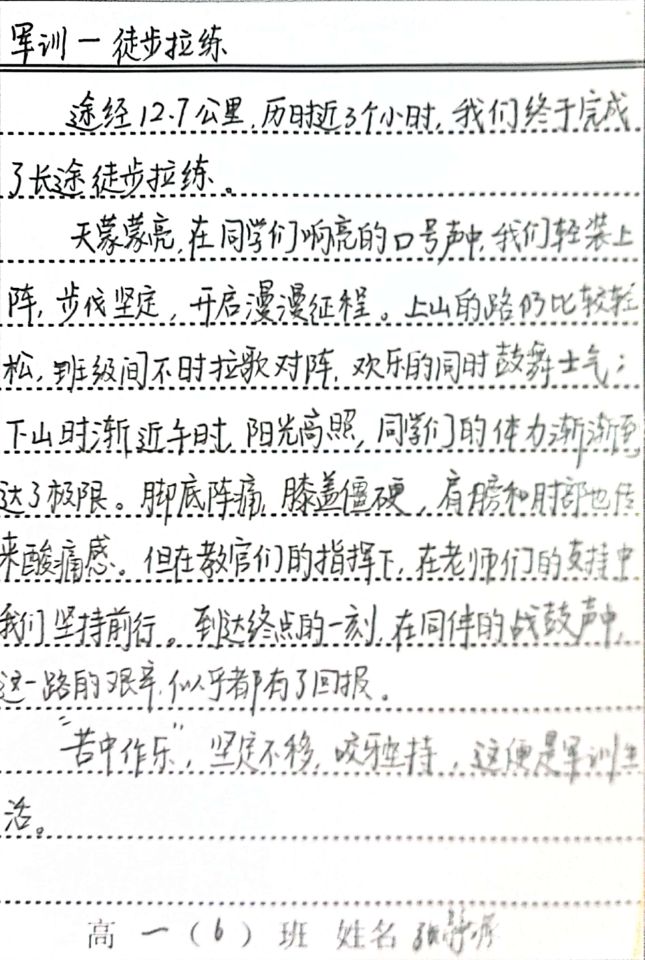 军训一徒步拉练
途经12.7公里,历时近3个小时,我们终于完成
了长途徒步拉练。
天蒙蒙亮,在同学们响亮的口号声中,我们轻装上
阵,步伐坚定,开启漫漫征程。上山的路仍比较轻
松,班级间不时拉歌对阵,欢乐的同时鼓舞士气;
下山时渐近午时,阳光高照,同学们的体力渐渐到
达了极限。脚底阵痛,膝盖僵硬,肩膀和肘部也传
来酸痛感。但在教官们的指挥下,在老师们的支持中
我们坚持前行。到达终点的一刻,在同伴的战鼓声中,
这一路的艰辛,似乎都有了回报。
“苦中作乐”,坚定不移,咬牙坚持,这便是军训生
活。
高一(6)班 姓名 张